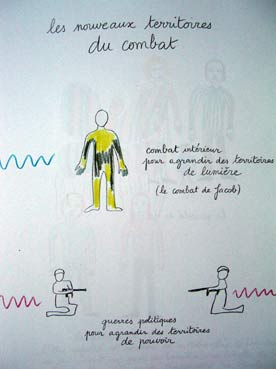 les nouveaux territoires
du combat
combat intérieur
pour agrandir des territoires
de lumière
(le combat de Jacob)
guerres politiques
pour agrandir des territoires
de pouvoir